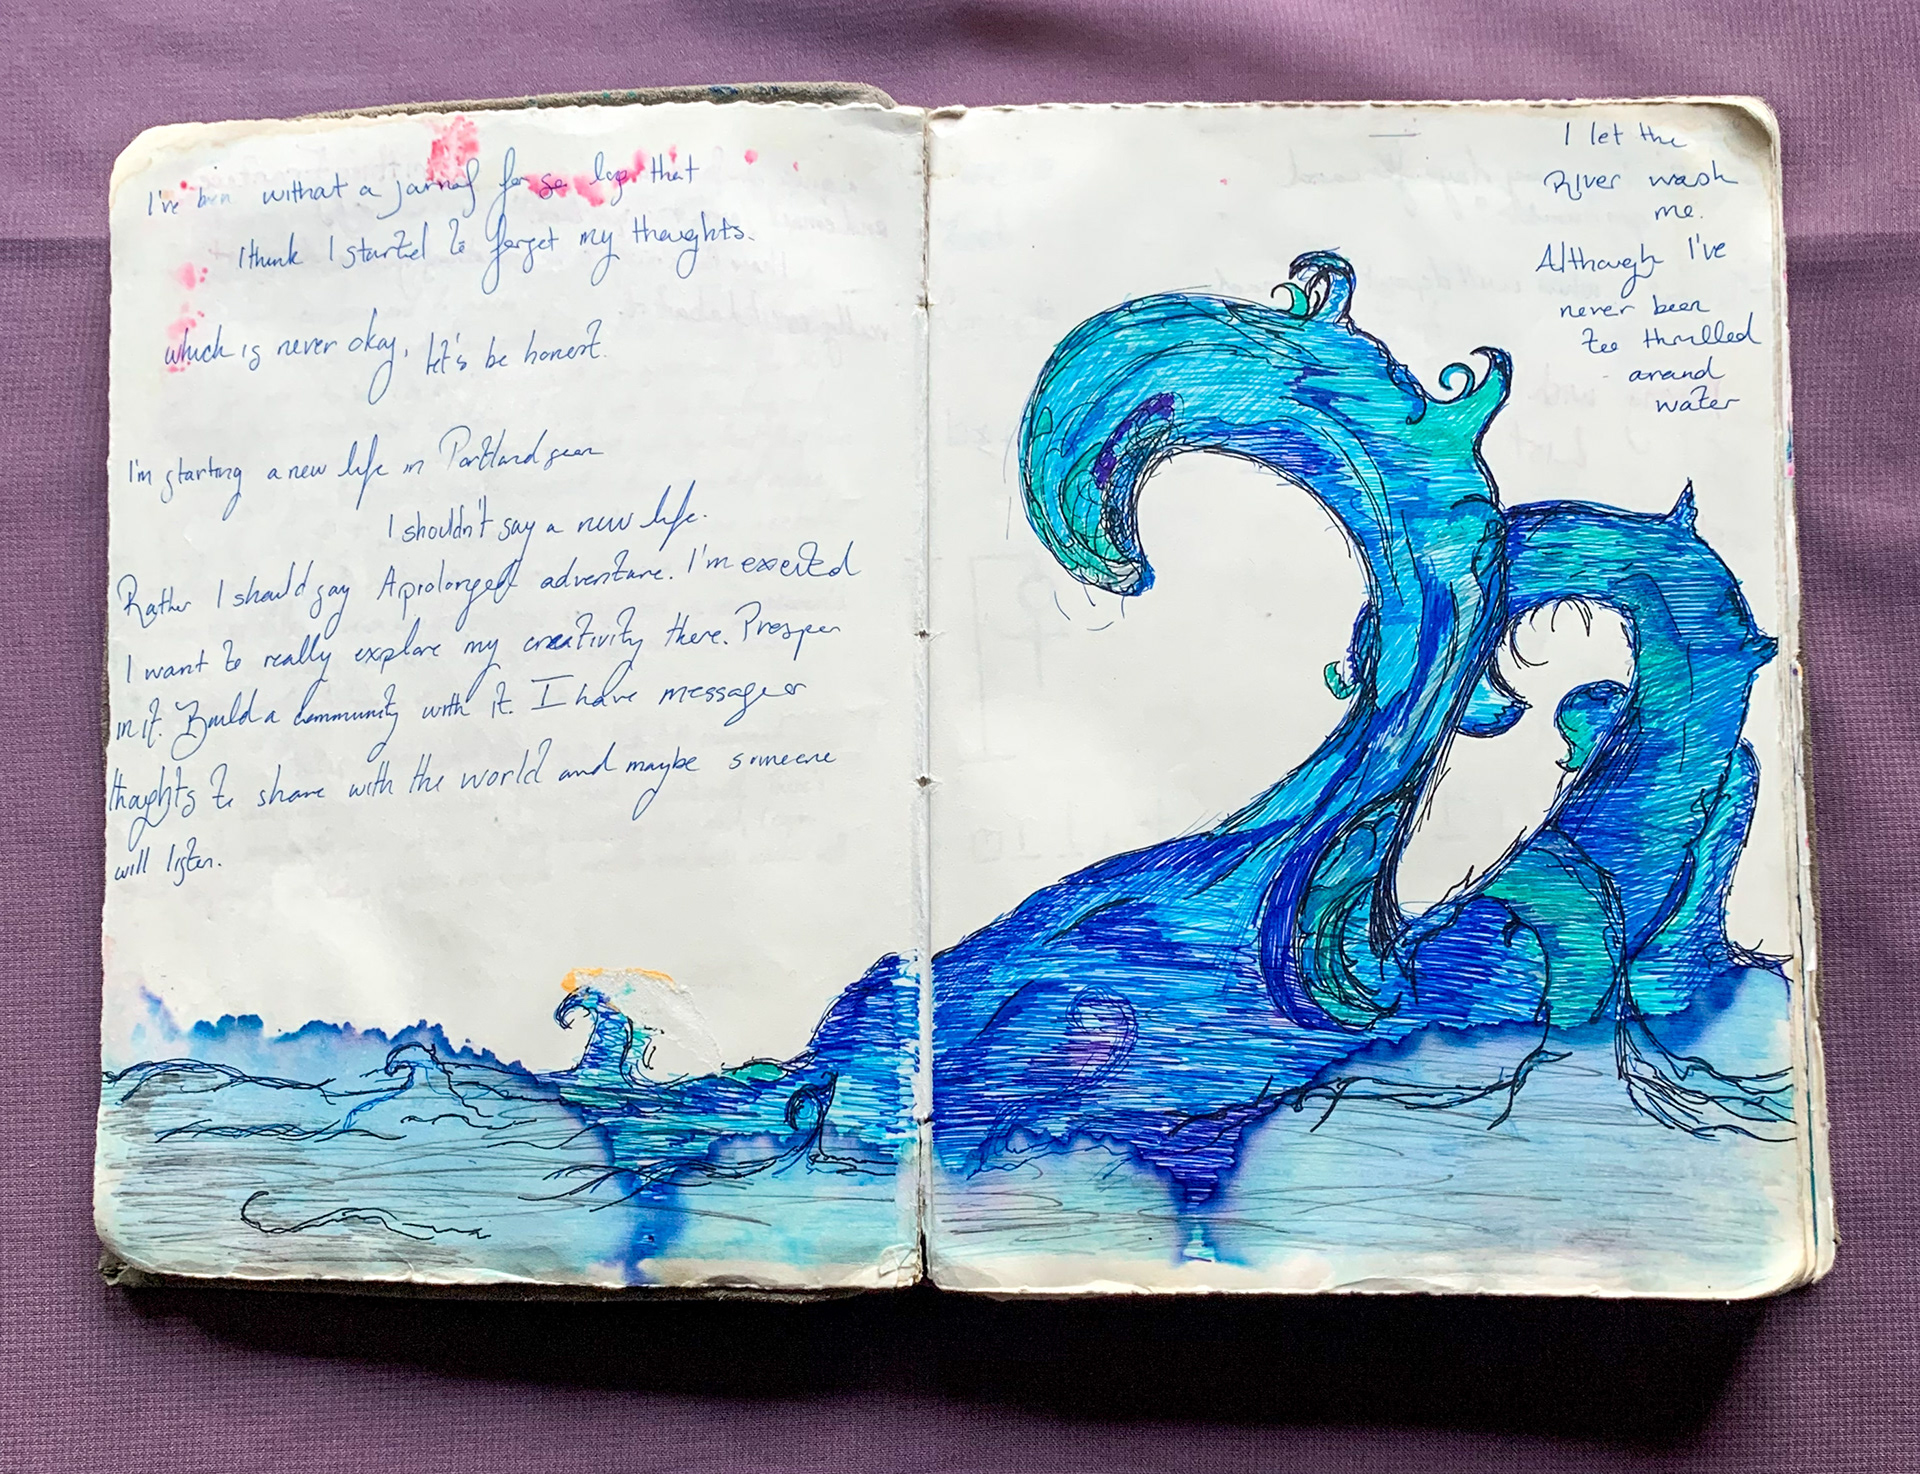 I've been without a journal for so long that
I think I started to forget my thoughts.
which is never okay, let's be honest.
I'm starting a new life in Portland soon
I shouldn't say a new life.
Rather I should say A prolonged adventure. I'm excited
I want to really explore my creativity there. Prosper
in it. Build a community with it. I have messages or
thoughts to share with the world and maybe someone
will listen.
I let the
River wash
me.
Although I've
never been
too thrilled
around
water